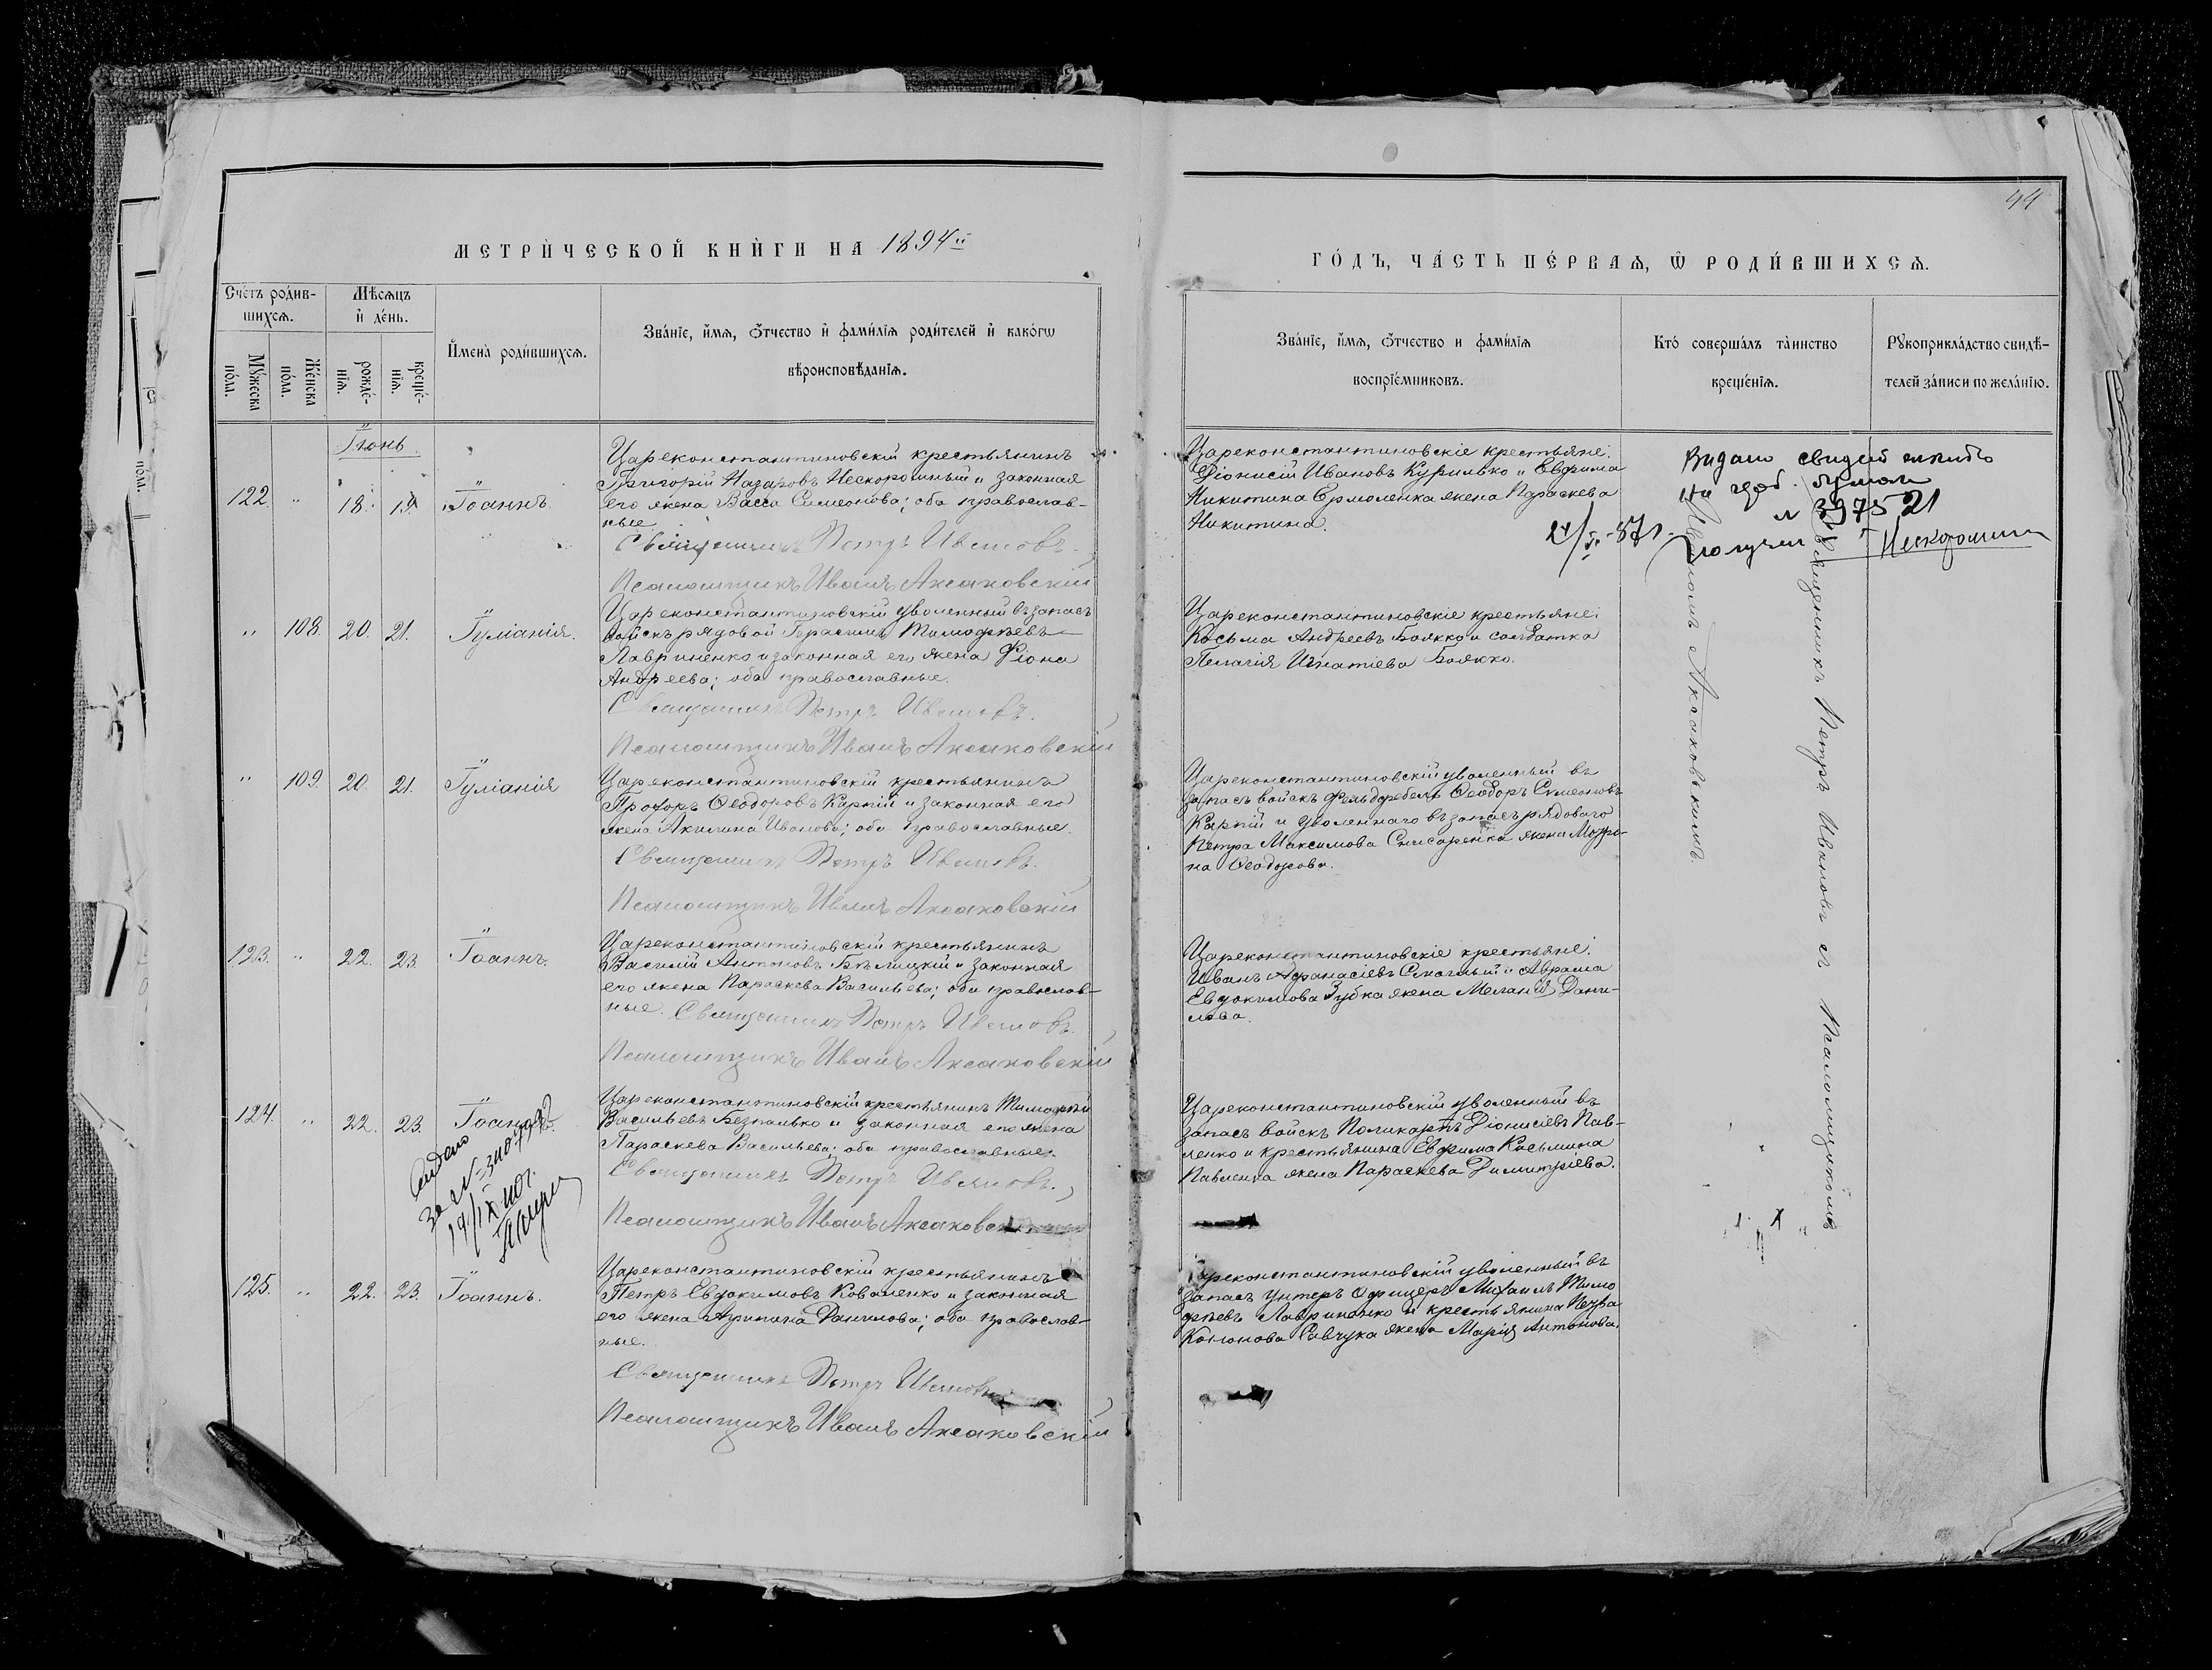 44
МЕТРИ́ЧЕСКОЙ КНИ́ГИ НА 1894й
ГО́ДЪ, ЧА́СТЬ ПЕ́РВАѦ, Ѿ РОДИ́ВШИХСѦ.
Сче́тъ роди́в-
шихсѧ.
Мѣ́сѧцъ
и҆ де́нь.
Му́жеска
по́ла.
Же́нска
по́ла.
рожде́-
нїѧ.
креще́-
нїѧ.
И҆мена̀ роди́вшихсѧ.
Зва́нїе, и҆́мѧ, ѻ҆́тчество и҆ фами́лїѧ роди́телей и҆ како́гѡ
вѣроисповѣ́данїѧ.
Зва́нїе, и҆́мѧ, ѻ҆́тчество и фами́лїѧ
воспрїе́мниковъ.
Кто́ соверша́лъ та́инство
креще́нїѧ.
Рꙋкоприкла́дство свидѣ́-
телей за́писи по жела́нїю.
Іюнь
122. " 18. 19. Іоаннъ.
Цареконстантиновскій крестьянинъ
Григорій Назаровъ Нескоромный и законная
его жена Васса Симеонова; оба православ-
ные
Священникъ Петръ Ивановъ.
Псаломщикъ Иванъ Аксаковскій
Цареконстантиновскіе крестьяне:
Діонисій Ивановъ Курилько и Евфима
Никитина Ермоленка жена Параскева
Никитина.
Видано
на
№ 397521
24/V-57г.
получил Нескоромни
" 108. 20. 21. Іуліанія.
Цареконстантиновскій уволенный въ запасъ
войскъ рядовой Герасимъ Тимофѣевъ
Лавриненко и законная его жена Фіона
Андреева; оба православные.
Священникъ Петръ Ивановъ.
Псаломщикъ Иванъ Аксаковскій
Цареконстантиновскіе крестьяне:
Косьма Андреевъ Божко и солдатка
Пелагія Игнатіева Божко.
" 109. 20. 21. Іуліанія
Цареконстантиновскій крестьянинъ
Прохоръ Ѳеодоровъ Карпій и законная его
жена Акилина Иванова; оба православные.
Священникъ Петръ Ивановъ.
Псаломщикъ Иванъ Аксаковскій
Цареконстантиновскій уволенный въ
запасъ войскъ фельдфебель Ѳеодоръ Симеоновъ
Карпій и уволеннаго въ запасъ рядоваго
Петра Максимова Снисаренка жена Матро-
на Ѳеодорова.
123. " 22. 23. Іоаннъ.
Цареконстантиновскій крестьянинъ
Василій Антоновъ Бѣлицкій и законная
его жена Параскева Васильева; оба православ-
ные. Священникъ Петръ Ивановъ.
Псаломщикъ Иванъ Аксаковскій
Цареконстантиновскіе крестьяне:
Иванъ Афанасіевъ и Аврама
Евдокимова Зубка жена Меланія Дани-
лова.
124. " 22. 23. Іоаннъ.
Цареконстантиновскій крестьянинъ Тимофей
Васильевъ Безпалько и законная его жена
Параскева Васильева; оба православные.
Священникъ Петръ Ивановъ.
Псаломщикъ Иванъ Аксаковскій
Цареконстантиновскій уволенный въ
запасъ войскъ Поликарпъ Діонисіевъ Пав-
ленко и крестьянина Евфима Косьмина
Павленка жена Параскева Димитріева.
125. " 22. 23. Іоаннъ.
Цареконстантиновскій крестьянинъ
Петръ Евдокимовъ Коваленко и законная
его жена Агрипина Данилова; оба православ-
ные.
Священникъ Петръ Ивановъ
Псаломщикъ Иванъ Аксаковскій
Цареконстантиновскій уволенный въ
запасъ унтеръ офицеръ Михаилъ Тимо
фѣевъ Лавриненко и крестьянина
Кононова Савчука жена Марія Антонова.
Священникъ Петръ Ивановъ съ Псаломщикомъ
Иваномъ Аксаковскимъ.